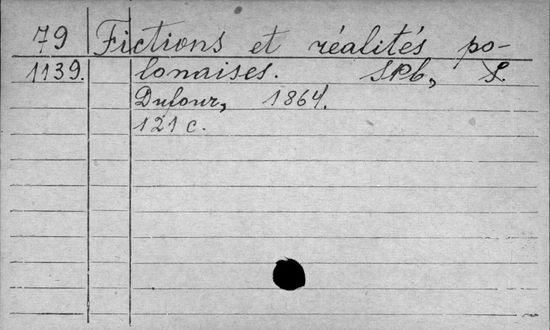 79 Fictions et réalités po-
1139. lonaises. SPb, S.
Dufour, 1864.
121 c.